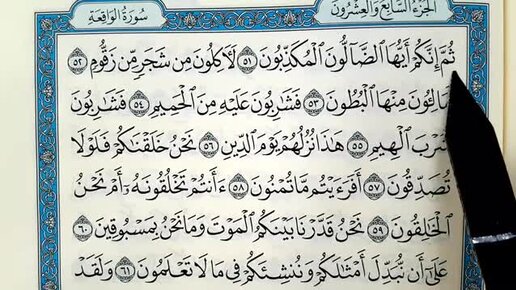 الجزء السابع والعشرون
سورة الواقعة
ثُمَّ إِنَّكُمْ أَيُّهَا الضَّآلُّونَ الْمُكَذِّبُونَ ٥١ لَآكِلُونَ مِن شَجَرٍ مِّن زَقُّومٍ ٥٢
فَمَالِـُٔونَ مِنْهَا الْبُطُونَ ٥٣ فَشَارِبُونَ عَلَيْهِ مِنَ الْحَمِيمِ ٥٤ فَشَارِبُونَ
شُرْبَ الْهِيمِ ٥٥ هَٰذَا نُزُلُهُمْ يَوْمَ الدِّينِ ٥٦ نَحْنُ خَلَقْنَاكُمْ فَلَوْلَا
تُصَدِّقُونَ ٥٧ أَفَرَءَيْتُم مَّا تُمْنُونَ ٥٨ ءَأَنتُمْ تَخْلُقُونَهُۥٓ أَمْ نَحْنُ
الْخَالِقُونَ ٥٩ نَحْنُ قَدَّرْنَا بَيْنَكُمُ الْمَوْتَ وَمَا نَحْنُ بِمَسْبُوقِينَ ٦٠
عَلَىٰٓ أَن نُّبَدِّلَ أَمْثَالَكُمْ وَنُنشِئَكُمْ فِي مَا لَا تَعْلَمُونَ ٦١ وَلَقَدْ